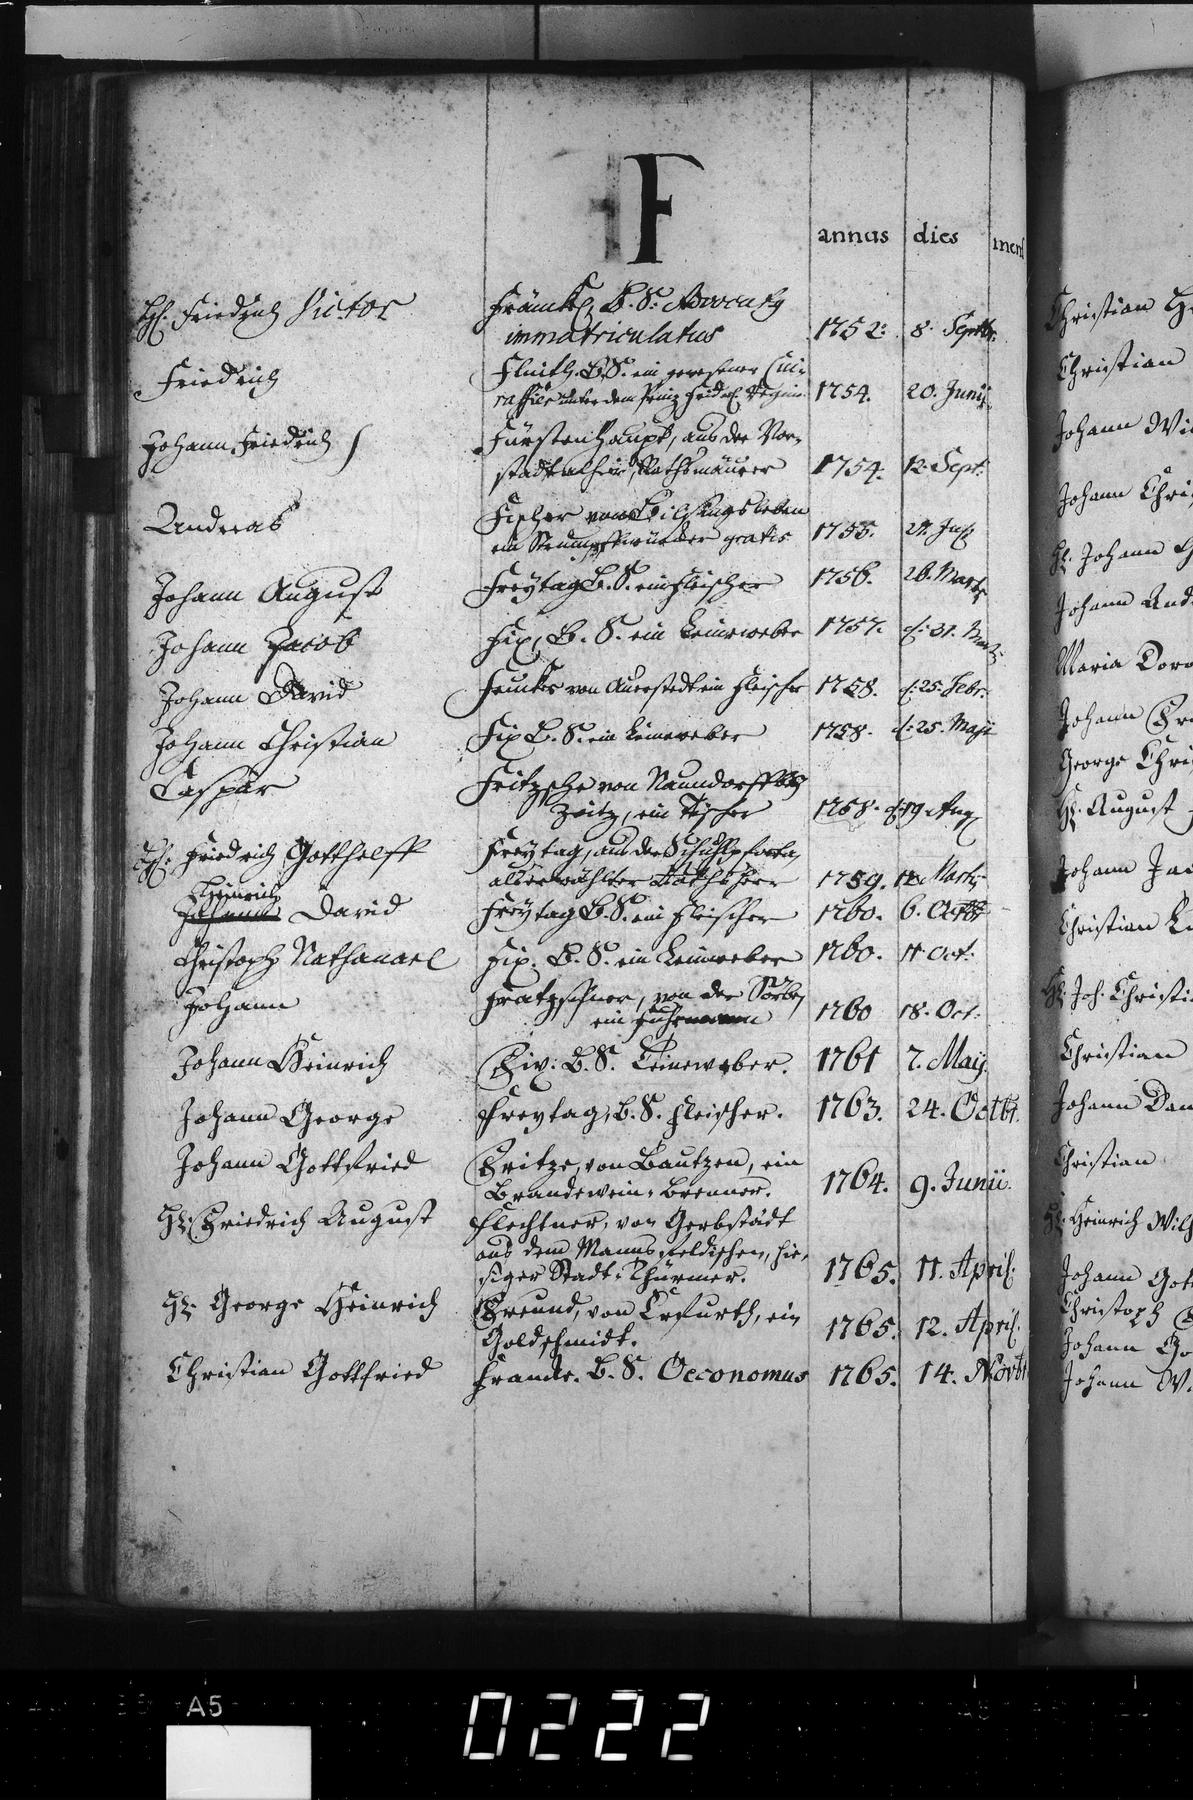 F
annus dies mens
H. Friedrich Victor Fränckel, B. S. Advocatg
immatriculatus 1752. 8. Septbr.
Friedrich B. S. ein gewesener Cui-
rassier unter dem Prinz Friedr. Regim. 1754. 20. Junij
Johann Friedrich Fürstenhaupt, aus der Vor-
stadt alhier, Rathsmäurer 1754. 12. Sept.
Andreas Fischer von Bilzingsleben
ein Strumpffwürcker gratis 1755. 27.
Johann August Freytag B. S. ein Fleischer 1756. 26. Martij
Johann Jacob Fix, B. S. ein Leineweber 1757. d. 31. Martij
Johann David Funcke von Auerstedt ein Fleischer 1758. d. 25. Febr.
Johann Christian Fix B. S. ein Leineweber 1758. d. 25. Maji
Caspar Fritzsche von Naundorff bey
Zeitz, ein Tischer 1758. d. 19 Aug.
H. Friedrich Gotthelff Freytag, aus der Schulpforta,
als erwählter Rathsherr 1759. Martij
Heinrich
Johann David Freytag B. S. ein Fleischer 1760. 6. Octbr
Christoph Nathanael Fix. B. S. ein Leineweber 1760. 11 Oct.
Johann Fratzscher, von der Sorbe,
ein Fuhrmann 1760 18. Oct.
Johann Heinrich Fix: B. S. Leineweber. 1761 7. Maij.
Johann George Freytag, B. S. Fleischer. 1763. 24. Octbr.
Johann Gottfried Fritze, von Bautzen, ein
Brandewein-Brenner. 1764. 9. Junii.
H. Friedrich August Flechtner, von Gerbstädt
aus dem Mannsfeldischen, hie-
siger Stadt-Thürmer. 1765. 11. April.
H. George Heinrich Freund, von Erfurth, ein
Goldschmidt. 1765. 12. April.
Christian Gottfried Francke. B. S. Oeconomus 1765. 14. Novbr
Christian
Christian
Johann
Johann
H. Johann
Johann
Maria
Johann
George
H. August
Johann
Christian
H. Joh.
Christian
Johann
Christian
H. Heinrich
Johann
Christoph
Johann
Johann
A5
0222